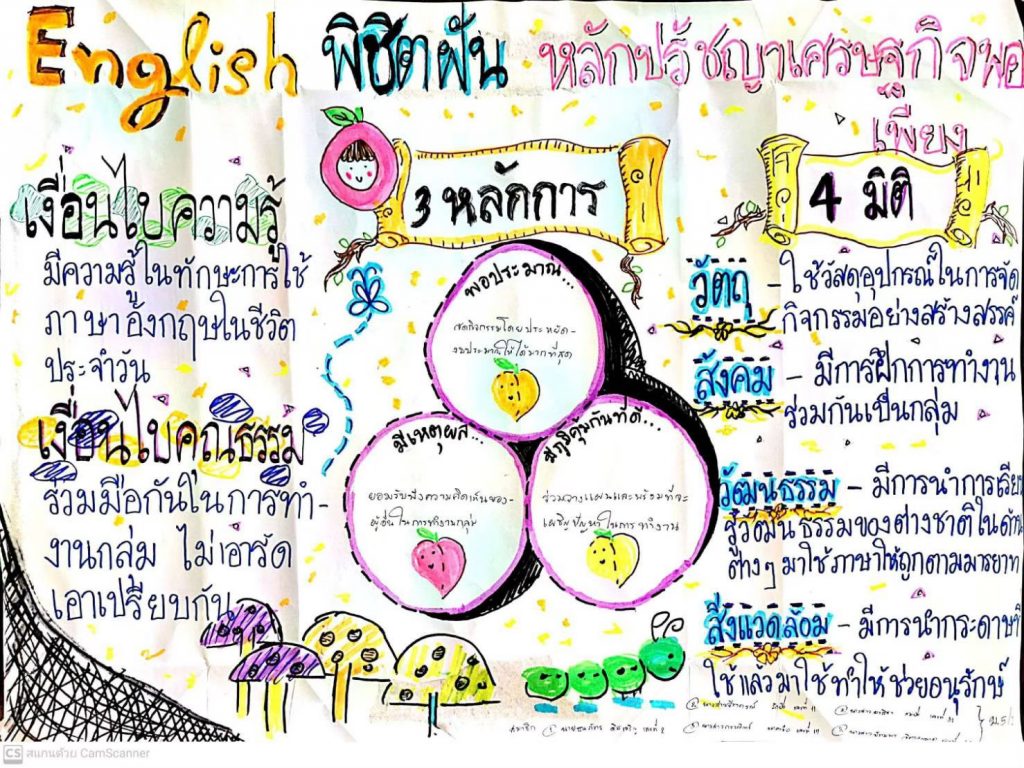 English พิชิตฝัน หลักปรัชญาเศรษฐกิจพอ
เพียง
เงื่อนไขความรู้
มีความรู้ในทักษะการใช้
ภาษาอังกฤษในชีวิต
ประจำวัน
เงื่อนไขคุณธรรม
ร่วมมือกันในการทำ
งานกลุ่ม ไม่เอารัด
เอาเปรียบกัน
3 หลักการ
พอประมาณ...
จัดกิจกรรมโดยประหยัด-
งบประมาณให้ได้มากที่สุด
มีเหตุผล...
ยอมรับฟังความคิดเห็นของ-
ผู้อื่นในการทำงานกลุ่ม
มีภูมิคุ้มกันที่ดี...
ร่วมวางแผนและพร้อมที่จะ
เผชิญปัญหาในการทำงาน
4 มิติ
วัตถุ - ใช้วัสดุอุปกรณ์ในการจัด
กิจกรรมอย่างสร้างสรรค์
สังคม - มีการฝึกการทำงาน
ร่วมกันเป็นกลุ่ม
วัฒนธรรม - มีการนำการเรียน
รู้วัฒนธรรมของต่างชาติในด้าน
ต่างๆ มาใช้ภาษาให้ถูกตามมารยาท
สิ่งแวดล้อม - มีการนำกระดาษที่
ใช้แล้วมาใช้ทำให้ช่วยอนุรักษ์
สมาชิก
CS สแกนด้วย CamScanner